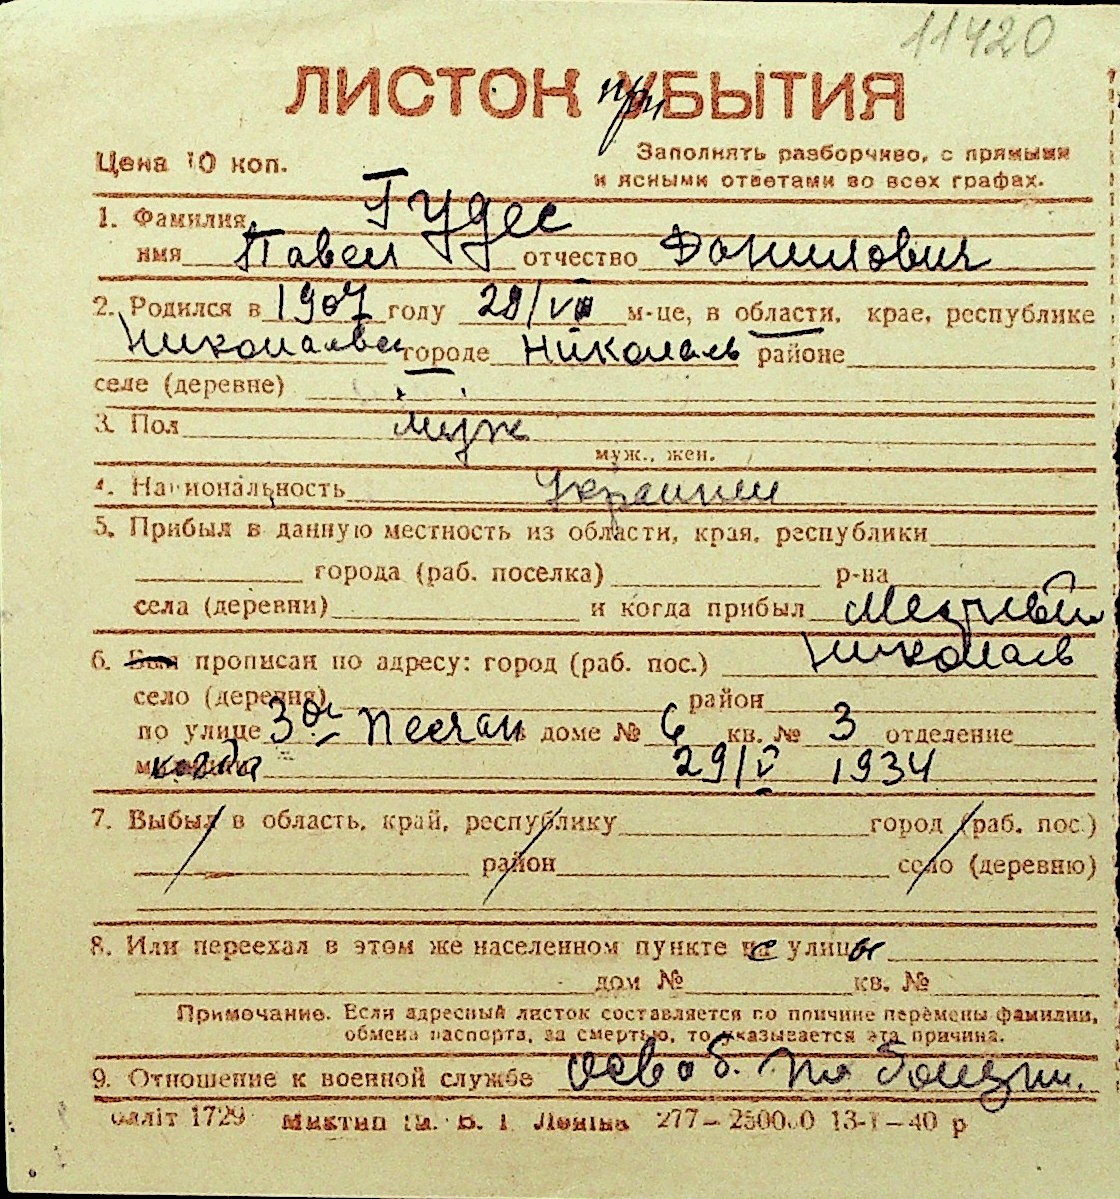 11420
ЛИСТОК при УБЫТИЯ
Цена 10 коп.
Заполнять разборчиво, с прямыми
и ясными ответами во всех графах.
1. Фамилия Гудес
имя Павел отчество Данилович
2. Родился в 1907 году 29/VII м-це, в области, крае, республике
Николаевск городе Николаев районе
селе (деревне)
3. Пол муж
муж., жен.
4. Национальность Украинец
5. Прибыл в данную местность из области, края, республики
города (раб. поселка) р-на
села (деревни) и когда прибыл Местный
6. Был прописан по адресу: город (раб. пос.) Николаев
село (деревня) район
по улице 3ая Песчан доме № 6 кв. № 3 отделение
когда 29/V 1934
7. Выбыл в область, край, республику город (раб. пос.)
район село (деревню)
8. Или переехал в этом же населенном пункте с улицы
дом № кв. №
Примечание. Если адресный листок составляется по причине перемены фамилии,
обмена паспорта, за смертью, то указывается эта причина.
9. Отношение к военной службе освоб. по болезни.
1729 Миктип ім. В. І. Леніна 277—250000 13-І—40 р